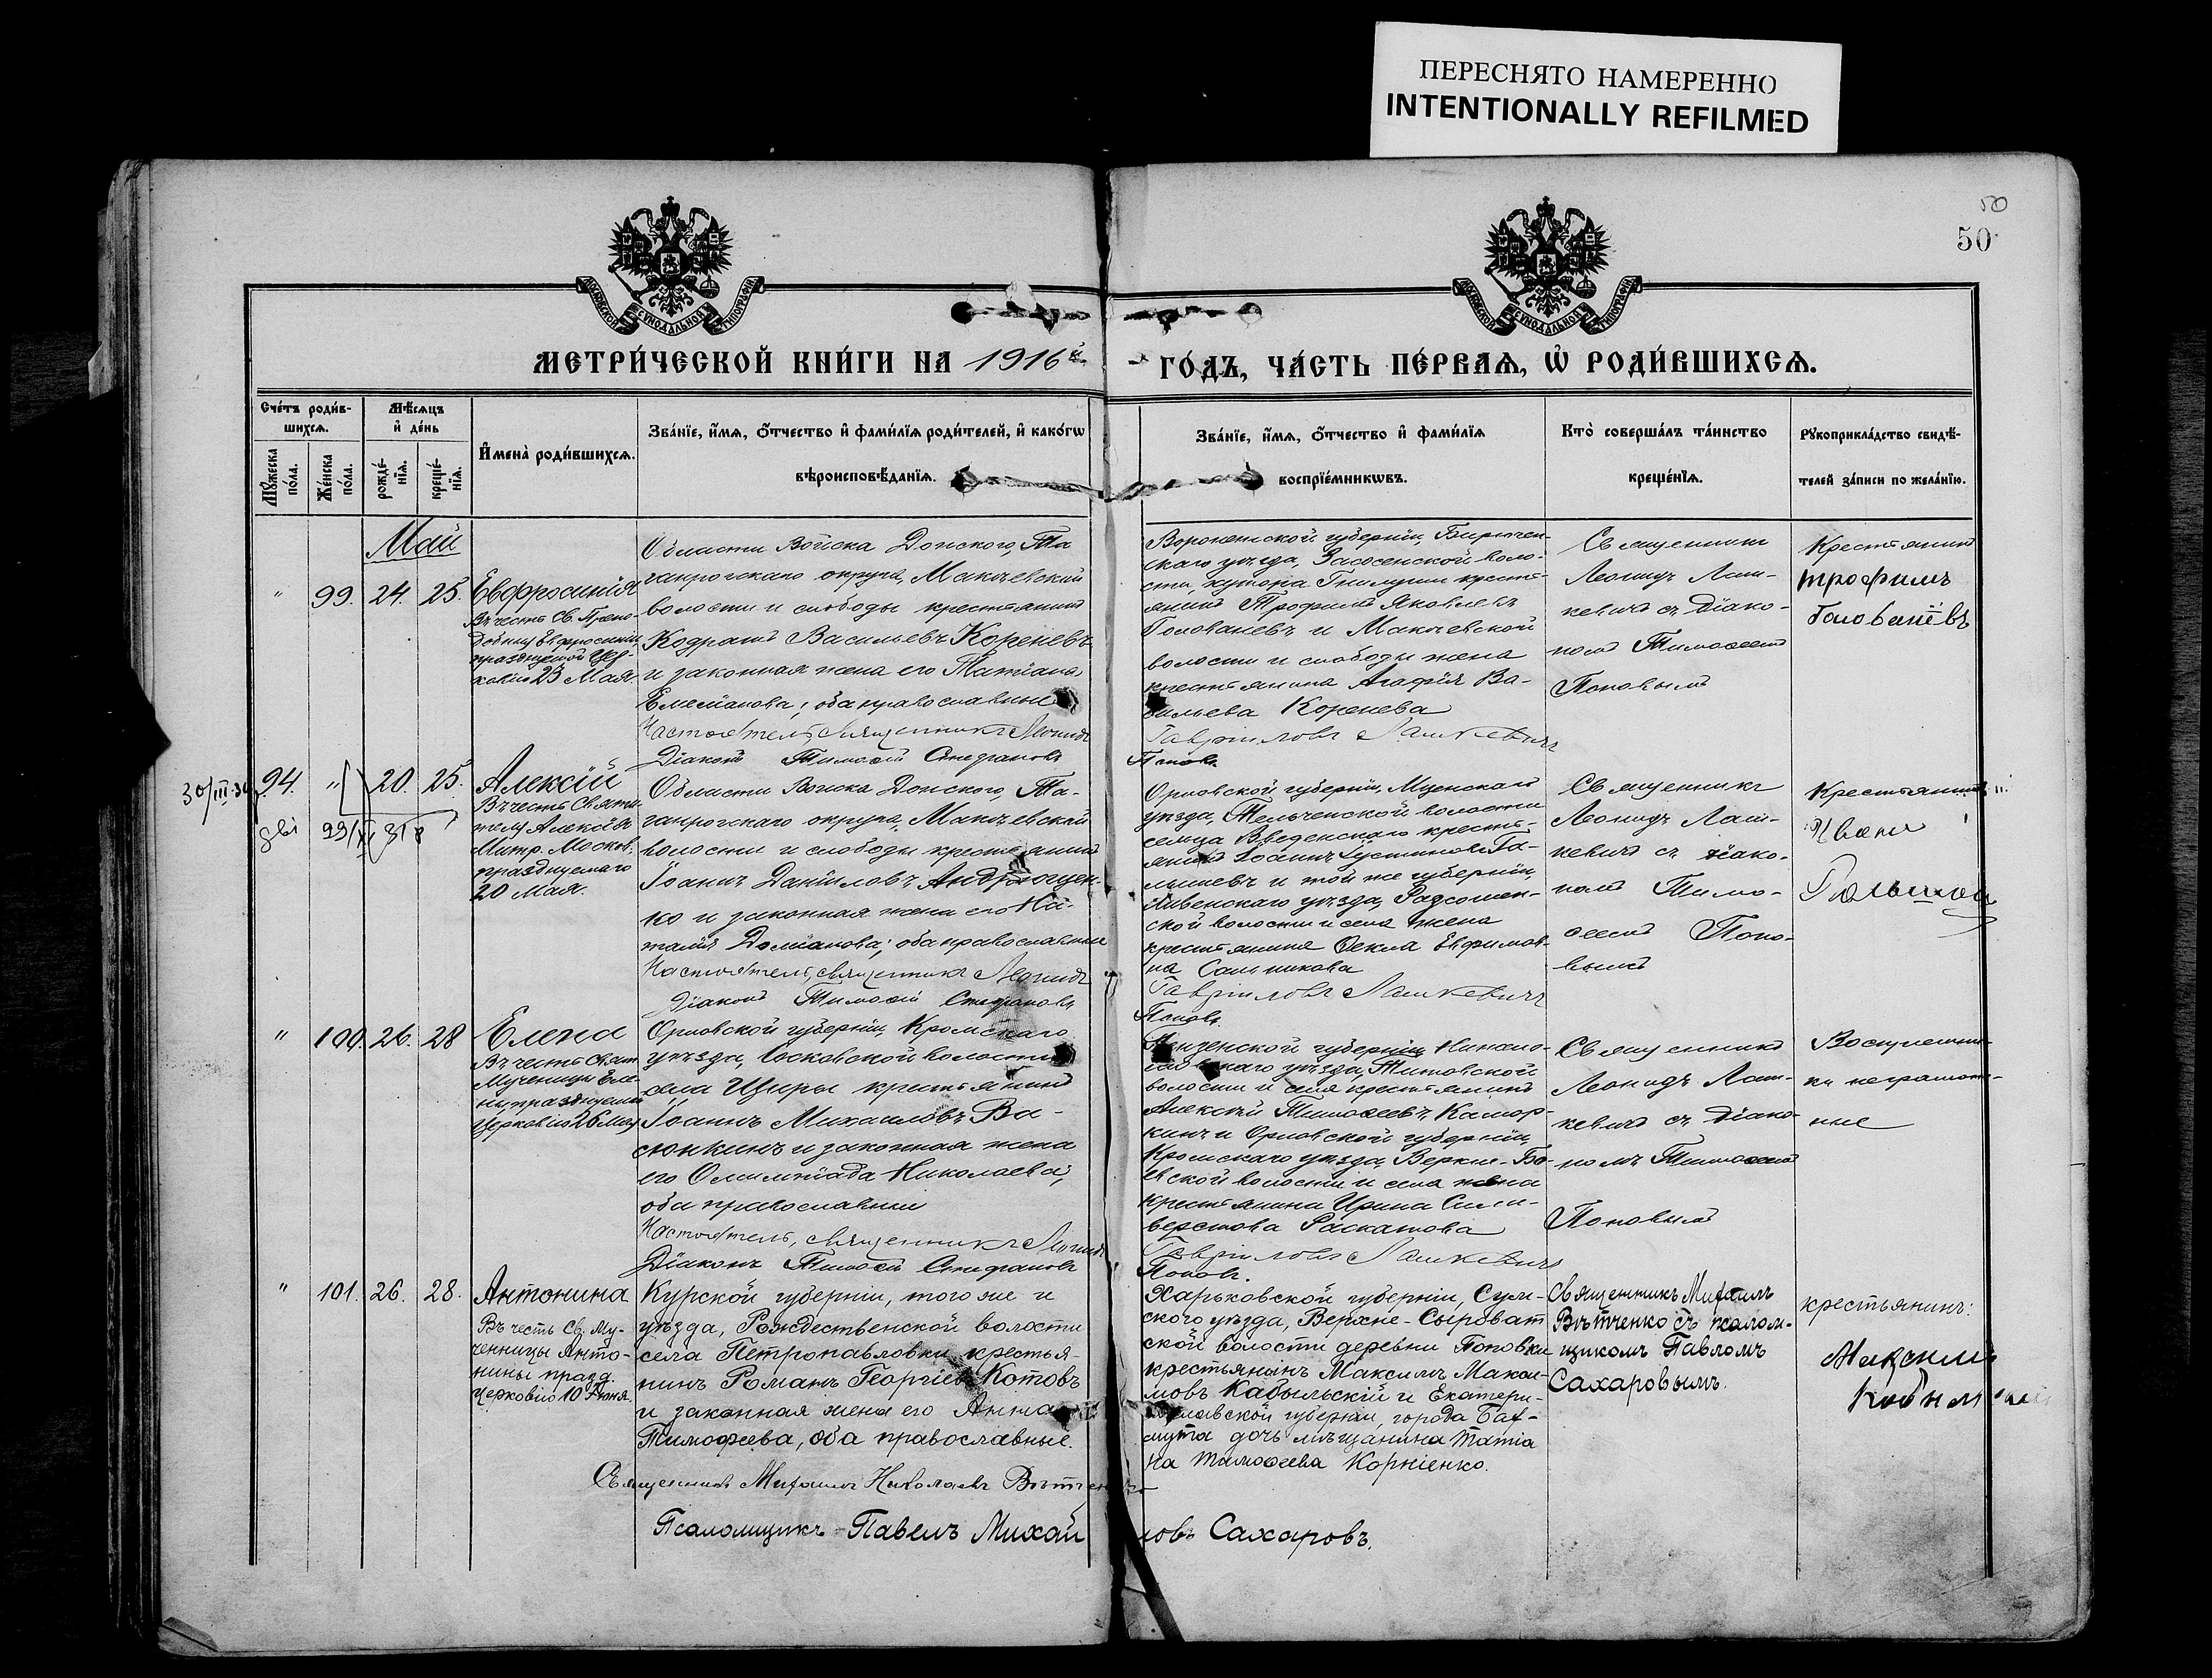 ПЕРЕСНЯТО НАМЕРЕННО
INTENTIONALLY REFILMED
50
50
МОСКОВСКОЙ СѴНОДАЛЬНОЙ ТИПОГРАФІИ
МОСКОВСКОЙ СѴНОДАЛЬНОЙ ТИПОГРАФІИ
МЕТРИ́ЧЕСКОЙ КНИ́ГИ НА 1916й
ГО́ДЪ, ЧА́СТЬ ПЕ́РВАѦ, Ѡ҆ РОДИ́ВШИХСѦ.
Сче́тъ роди́в-
шихсѧ.
Мꙋ́жеска
по́ла.
Же́нска
по́ла.
Мѣ́сѧцъ
и҆ де́нь
рожде́-
нїѧ.
креще́-
нїѧ.
И҆мена̀ роди́вшихсѧ.
Зва́нїе, и҆́мѧ, ѻ҆́тчество и҆ фами́лїѧ роди́телей, и҆ како́гѡ
вѣроисповѣ́данїѧ.
Зва́нїе, и҆́мѧ, ѻ҆́тчество и҆ фами́лїѧ
воспрїе́мникѡвъ.
Кто̀ соверша́лъ та́инство
креще́нїѧ.
Рꙋкоприкла́дство свидѣ́-
телей за́писи по жела́нїю.
Май
" 99. 24. 25.
Евфросинія
Въ честь Св. Препо-
добныя Евфросиніи,
празднуемой Цер-
ковію 23 Мая.
Области Войска Донского, Та
ганрогскаго округа, Макѣевской
волости и слободы крестьянинъ
Кодратъ Васильевъ Кореневъ
и законная жена его Татіана
Емеліанова; оба православные
Настоятель, священникъ Леонидъ
Діаконъ Тимоѳей Стефановъ
Воронежской губерніи, Бирючен-
скаго уѣзда, Засосенской воло-
сти, хутора Гнилуши кресть-
янинъ Трофимъ Яковлевъ
Голованевъ и Макѣевской
волости и слободы жена
крестьянина Агафія Ва-
сильева Коренева
Гавріиловъ Лашкевичъ
Поповъ.
Священникъ
Леонидъ Лаш-
кевичъ съ діако-
номъ Тимоѳеемъ
Поповымъ
Крестьянинъ
трофимъ
Голованёвъ
30/III-34
94. " 20. 25.
99/XI 318
Алексій
Въ честь Святи-
теля Алексѣя
Митр. Москов.
празднуемаго
20 Мая.
Области Войска Донского, Та-
ганрогскаго округа, Макѣевской
волости и слободы крестьянинъ
Іоаннъ Даніиловъ Андрющен-
ко и законная жена его На-
талія Даміанова; оба православные
Настоятель, священникъ Леонидъ
Діаконъ Тимоѳей Стефановъ
Орловской губерніи, Мценскаго
уѣзда, Тельченской волости
сельца Введенскаго кресть-
янинъ Іоаннъ Іустиновъ Га-
льшевъ и той же губерніи,
Ливенскаго уѣзда,
ской волости и села жена
крестьянина Ѳекла Евфимов-
на Сальникова
Гавріиловъ Лашкевичъ
Поповъ.
Священникъ
Леонидъ Лаш-
кевичъ съ діако-
номъ Тимо-
ѳеемъ Попо-
вымъ
Крестьянинъ
Иванъ
" 100. 26. 28
Елена
Въ честь Свят.
Мученицы Еле-
ны, празднуемой
Церковію 26 Мая
Орловской губерніи, Кромскаго
уѣзда, волости
села крестьянинъ
Іоаннъ Михаиловъ Ва-
сюнкинъ и законная жена
его Олимпіада Николаева;
оба православные
Настоятель, священникъ Леонидъ
Діаконъ Тимоѳей Стефановъ
Пензенской губерніи,
уѣзда, Титовской
волости и села крестьянинъ
Алексѣй Тимоѳеевъ Камор-
кинъ и Орловской губерніи,
Кромскаго уѣзда, Верхне-Бо-
евской волости и села жена
крестьянина Ирина Сили-
верстова Раскатова
Гавріиловъ Лашкевичъ
Поповъ.
Священникъ
Леонидъ Лаш-
кевичъ съ діако-
номъ Тимоѳеемъ
Поповымъ
Воспріемни-
ки неграмот-
ные
" 101. 26. 28.
Антонина
Въ честь Св. Му-
ченницы Анто-
нины празд.
Церковію 10 Іюня
Курской губерніи, того же и
уѣзда, Рождественской волости
села Петропавловки крестья-
нинъ Романъ Георгіевъ Котовъ
и законная жена его Анна
Тимоѳеева, оба православные.
Священникъ Михаилъ Николаевъ Вѣтченко
Псаломщикъ Павелъ Михайловъ Сахаровъ.
Харьковской губерніи, Сум-
ского уѣзда, Верхне-Сыроват
ской волости деревни Поповки
крестьянинъ Максимъ Макси-
мовъ Кабыльскій и Екатери-
нославской губерніи, города Бах-
мута дочь мѣщанина Татіа
на Тимоѳеева Корніенко.
Священникъ Михаилъ
Вѣтченко съ псалом-
щикомъ Павломъ
Сахаровымъ.
крестьянинъ:
Максимъ